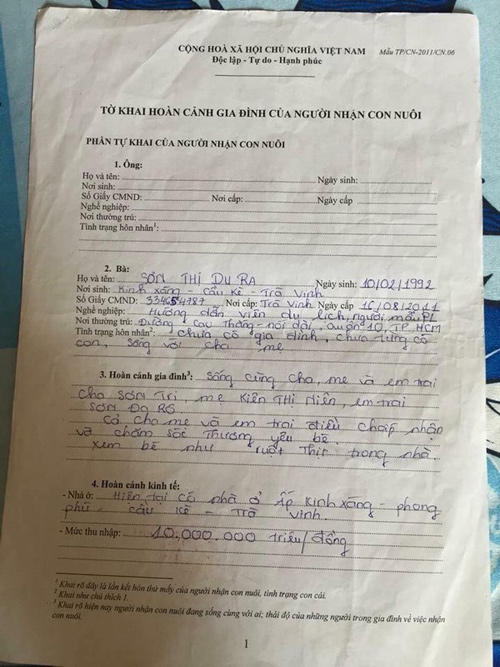 CỘNG HOÀ XÃ HỘI CHỦ NGHĨA VIỆT NAM
Độc lập - Tự do - Hạnh phúc
Mẫu TP/CN-2011/CN.06
TỜ KHAI HOÀN CẢNH GIA ĐÌNH CỦA NGƯỜI NHẬN CON NUÔI
PHẦN TỰ KHAI CỦA NGƯỜI NHẬN CON NUÔI
1. Ông:
Họ và tên: Ngày sinh:
Nơi sinh:
Số Giấy CMND: Nơi cấp: Ngày cấp
Nghề nghiệp:
Nơi thường trú:
Tình trạng hôn nhân¹:
2. Bà:
Họ và tên: SƠN THỊ DU RA Ngày sinh: 10/02/1992
Nơi sinh: Kinh xáng - cầu Kè - Trà Vinh
Số Giấy CMND: 334654787 Nơi cấp: Trà Vinh Ngày cấp 16/08/2011
Nghề nghiệp: Hướng dẫn viên du lịch, người mẫu
Nơi thường trú: Đường Cao Thắng - nối dài, Quận 10, TP HCM
Tình trạng hôn nhân²: chưa có gia đình, chưa từng có
con, sống với cha mẹ
3. Hoàn cảnh gia đình³: Sống cùng cha, mẹ và em trai
cha SƠN Tri, mẹ KIÊN THỊ HIÊN, em trai
SƠN ĐA RÔ
Cả cha mẹ và em trai điều chấp nhận
và chăm sóc thương yêu bé.
xem bé như ruột thịt trong nhà.
4. Hoàn cảnh kinh tế:
- Nhà ở: Hiện tại có nhà ở ấp Kinh xáng - phong
phú - cầu Kè - Trà Vinh.
- Mức thu nhập: 10.000.000 triệu/đồng
¹ Khai rõ đây là lần kết hôn thứ mấy của người nhận con nuôi, tình trạng con cái.
² Khai như chú thích 1.
³ Khai rõ hiện nay người nhận con nuôi đang sống cùng với ai; thái độ của những người trong gia đình về việc nhận
con nuôi.
1